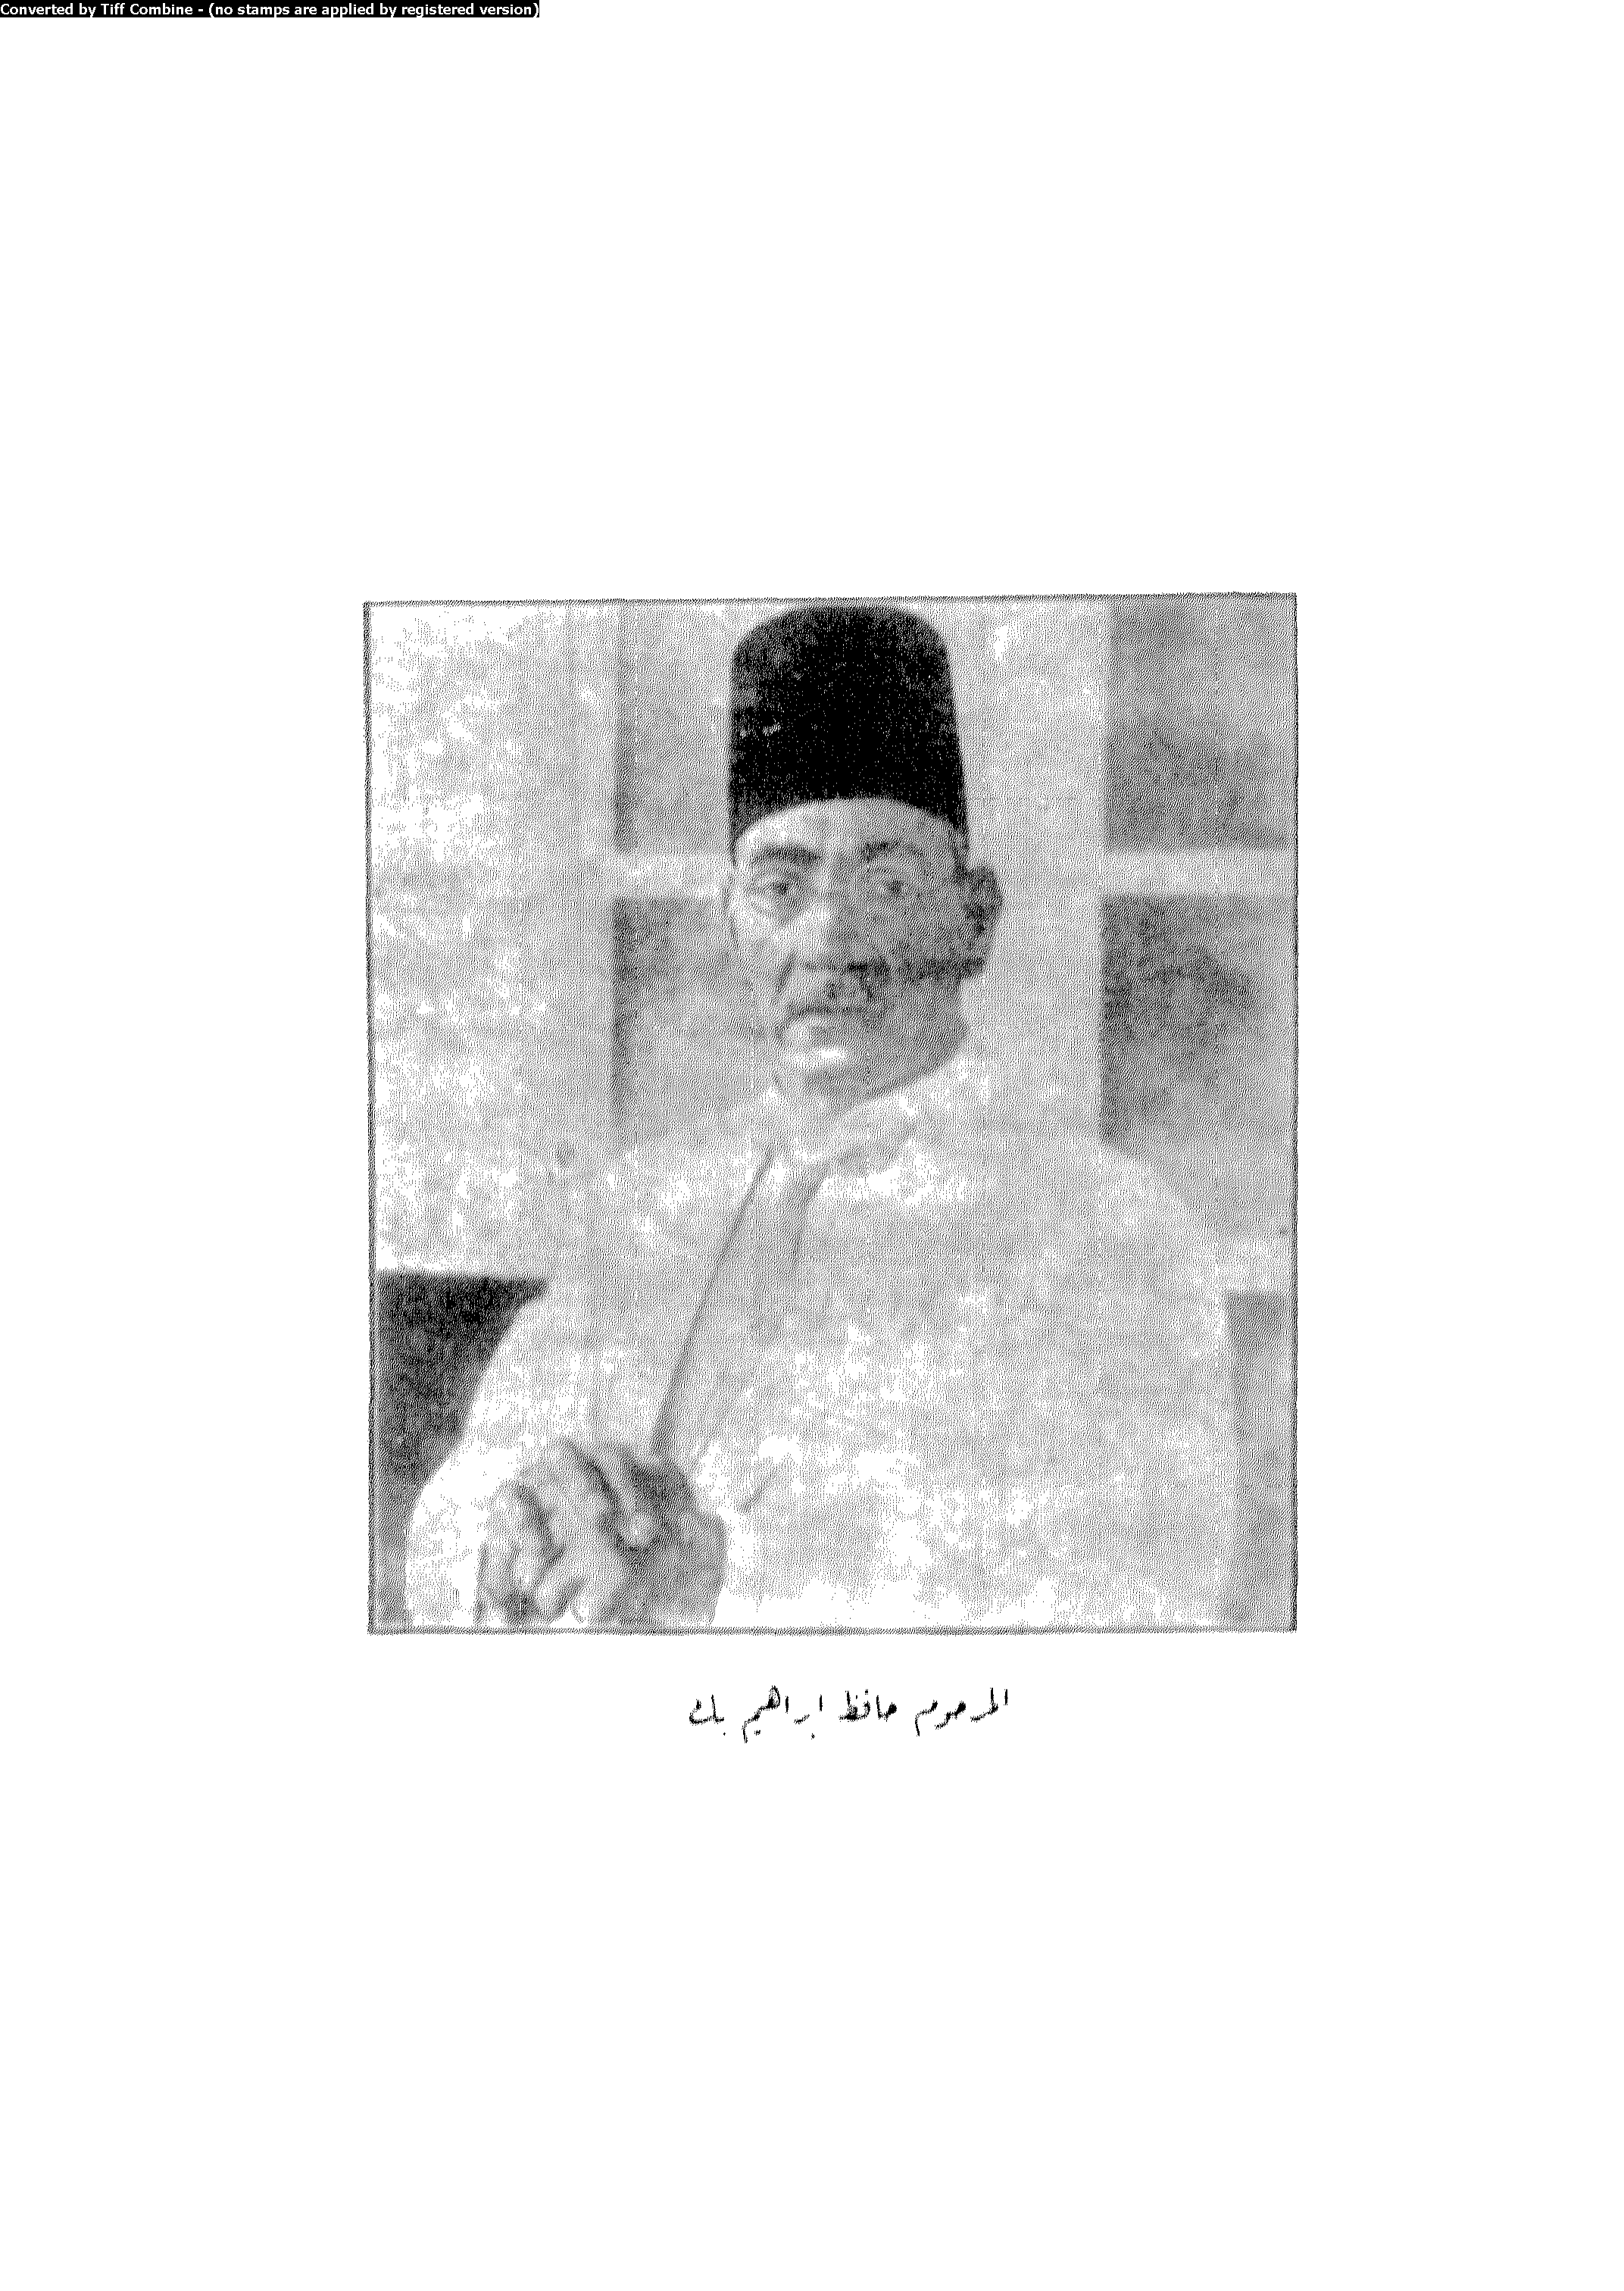 Converted by Tiff Combine - (no stamps are applied by registered version)
المرحوم حافظ ابراهيم بك